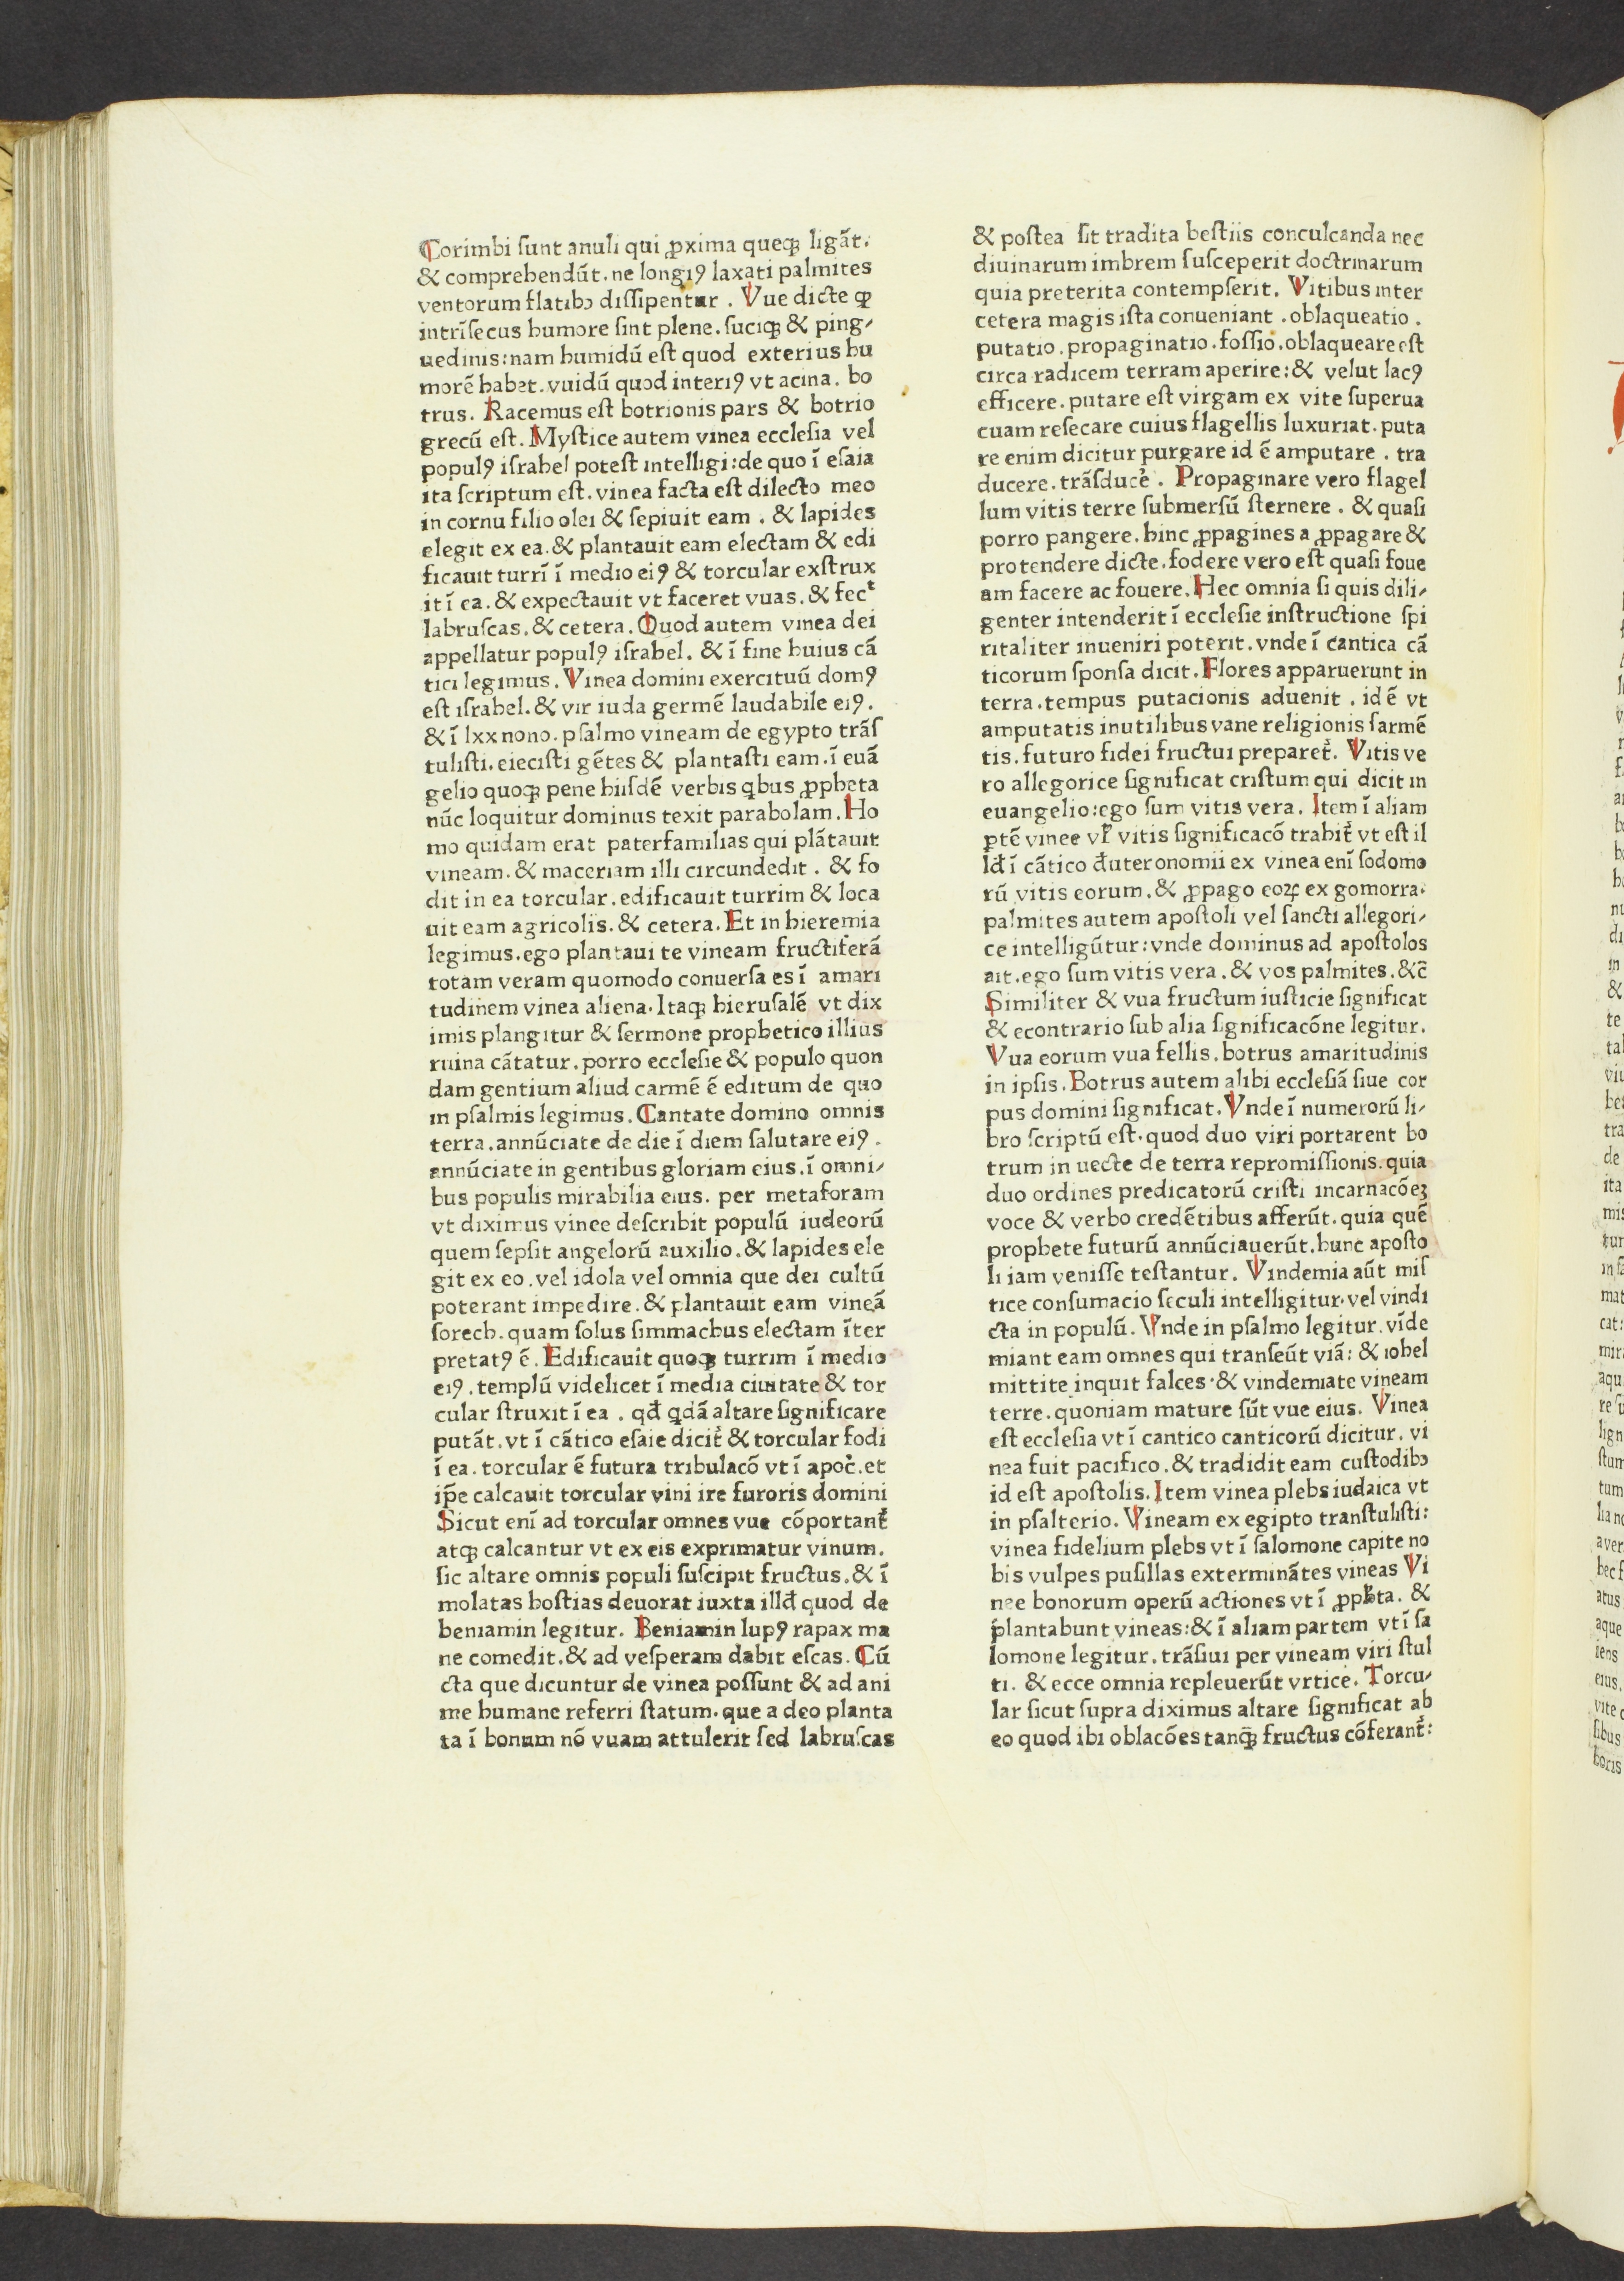 Corimbi ſunt anuli qui ꝓxima queqꝫ ligāt.
& comprehendūt. ne longiꝰ laxati palmites
ventorum flatibꝫ diſſipentur . Vue dicte ꝙ
intrīſecus humore ſint plene. ſuciqꝫ & ping⸗
uedinis: nam humidū eſt quod exterius hu
morē habet. vuidū quod interiꝰ vt acina. bo
trus. Racemus eſt botrionis pars & botrio
grecū eſt. Myſtice autem vinea eccleſia vel
populꝰ iſrahel poteſt intelligi: de quo ī eſaia
ita ſcriptum eſt. vinea facta eſt dilecto meo
in cornu filio olei & ſepiuit eam . & lapides
elegit ex ea. & plantauit eam electam & edi
ficauit turrī ī medio eiꝰ & torcular exſtrux
it ī ea. & expectauit vt faceret vuas. & fecᵗ
labruſcas. & cetera. Quod autem vinea dei
appellatur populꝰ iſrahel. & ī fine huius cā
tici legimus. Vinea domini exercituū domꝰ
eſt iſrahel. & vir iuda germē laudabile eiꝰ.
& ī lxx nono. pſalmo vineam de egypto trāſ
tuliſti. eieciſti gētes & plantaſti eam. ī euā
gelio quoqꝫ pene hiiſdē verbis qͥbus ꝓpheta
nūc loquitur dominus texit parabolam. Ho
mo quidam erat paterfamilias qui plātauit
vineam. & maceriam illi circundedit . & fo
dit in ea torcular. edificauit turrim & loca
uit eam agricolis. & cetera. Et in hieremia
legimus. ego plantaui te vineam fructiferā
totam veram quomodo conuerſa es ī amari
tudinem vinea aliena. Itaqꝫ hieruſalē vt dix
imis plangitur & ſermone prophetico illius
ruina cātatur. porro eccleſie & populo quon
dam gentium aliud carmē ē editum de quo
in pſalmis legimus. Cantate domino omnis
terra. annūciate de die ī diem ſalutare eiꝰ.
annūciate in gentibus gloriam eius. ī omni⸗
bus populis mirabilia eius. per metaforam
vt diximus vinee deſcribit populū iudeorū
quem ſepſit angelorū auxilio. & lapides ele
git ex eo. vel idola vel omnia que dei cultū
poterant impedire. & plantauit eam vineā
ſorech. quam ſolus ſimmachus electam īter
pretatꝰ ē. Edificauit quoqꝫ turrim ī medio
eiꝰ. templū videlicet ī media ciuitate & tor
cular ſtruxit ī ea . qđ qͥdā altare ſignificare
putāt. vt ī cātico eſaie dicit̉ & torcular fodi
ī ea. torcular ē futura tribulacō vt ī apoc̉. et
ip̄e calcauit torcular vini ire furoris domini
Sicut enī ad torcular omnes vue cōportant̉
atqꝫ calcantur vt ex eis exprimatur vinum.
ſic altare omnis populi ſuſcipit fructus. & ī
molatas hoſtias deuorat iuxta illđ quod de
beniamin legitur. Beniamin lupꝰ rapax ma
ne comedit. & ad veſperam dabit eſcas. Cū
cta que dicuntur de vinea poſſunt & ad ani
me humane referri ſtatum. que a deo planta
ta ī bonum nō vuam attulerit ſed labruſcas
& poſtea ſit tradita beſtiis conculcanda nec
diuinarum imbrem ſuſceperit doctrinarum
quia preterita contempſerit. Vitibus inter
cetera magis iſta conueniant . oblaqueatio .
putatio. propaginatio. foſſio. oblaqueare eſt
circa radicem terram aperire: & velut lacꝰ
efficere. putare eſt virgam ex vite ſuperua
cuam reſecare cuius flagellis luxuriat. puta
re enim dicitur purgare id ē amputare . tra
ducere. trāſducẻ . Propaginare vero flagel
lum vitis terre ſubmerſū ſternere . & quaſi
porro pangere. hinc ꝓpagines a ꝓpagare &
protendere dicte. fodere vero eſt quaſi foue
am facere ac fouere. Hec omnia ſi quis dili⸗
genter intenderit ī eccleſie inſtructione ſpi
ritaliter inueniri poterit. vnde ī cantica cā
ticorum ſponſa dicit. Flores apparuerunt in
terra. tempus putacionis aduenit . id ē vt
amputatis inutilibus vane religionis ſarmē
tis. futuro fidei fructui preparet̉. Vitis ve
ro allegorice ſignificat criſtum qui dicit in
euangelio: ego ſum vitis vera. Item ī aliam
ꝑtē vinee vl̉ vitis ſignificacō trahit̉ vt eſt il
lđ ī cātico đuteronomii ex vinea enī ſodomo
rū vitis eorum. & ꝓpago eoꝝ ex gomorra.
palmites autem apoſtoli vel ſancti allegori⸗
ce intelligūtur: vnde dominus ad apoſtolos
ait. ego ſum vitis vera. & vos palmites. &c̄
Similiter & vua fructum iuſticie ſignificat
& econtrario ſub alia ſignificacōne legitur.
Vua eorum vua fellis. botrus amaritudinis
in ipſis. Botrus autem alibi eccleſiā ſiue cor
pus domini ſignificat. Vnde ī numerorū li⸗
bro ſcriptū eſt. quod duo viri portarent bo
trum in uecte de terra repromiſſionis. quia
duo ordines predicatorū criſti incarnacōeꝫ
voce & verbo credētibus afferūt. quia quē
prophete futurū annūciauerūt. hunc apoſto
li iam veniſſe teſtantur. Vindemia aūt miſ
tice conſumacio ſeculi intelligitur. vel vindi
cta in populū. Vnde in pſalmo legitur. vīde
miant eam omnes qui tranſeūt viā: & iohel
mittite inquit falces. & vindemiate vineam
terre. quoniam mature ſūt vue eius. Vinea
eſt eccleſia vt ī cantico canticorū dicitur. vi
nea fuit pacifico. & tradidit eam cuſtodibꝫ
id eſt apoſtolis. Item vinea plebs iudaica vt
in pſalterio. Vineam ex egipto tranſtuliſti:
vinea fidelium plebs vt ī ſalomone capite no
bis vulpes puſillas exterminātes vineas Vi
nee bonorum operū actiones vt ī ꝓpħta. &
plantabunt vineas: & ī aliam partem vt ī ſa
lomone legitur. trāſiui per vineam viri ſtul
ti. & ecce omnia repleuerūt vrtice. Torcu⸗
lar ſicut ſupra diximus altare ſignificat ab
eo quod ibi oblacōes tanq̄ꝫ fructus cōferant̉: